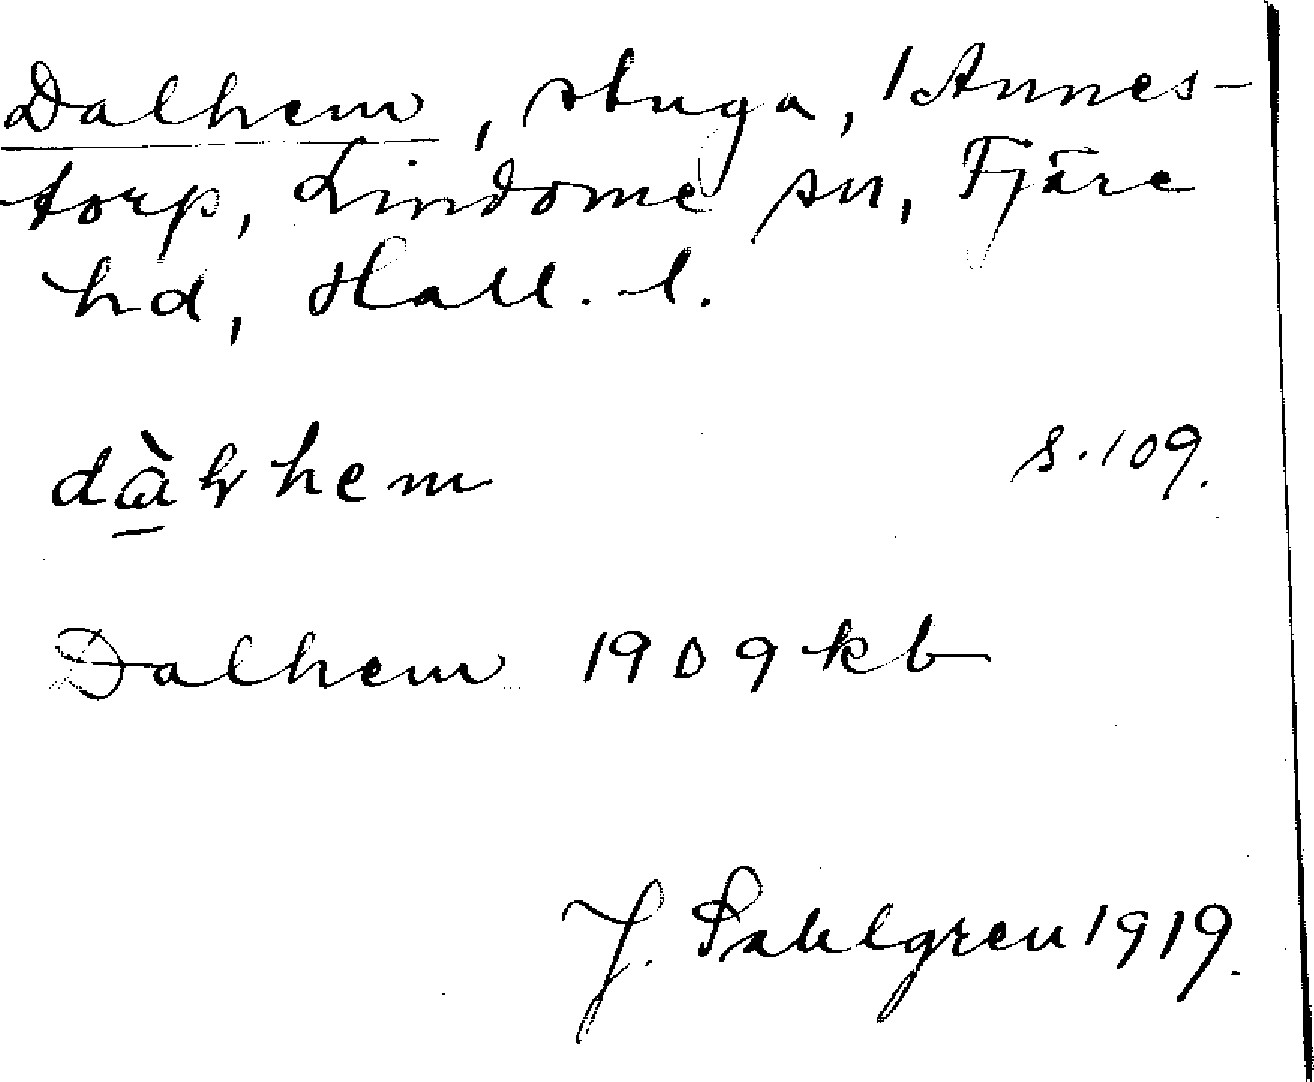 Dalhem, stuga, 1 Annes-
torp, Lindome sn, Fjäre
hd, Hall. l.
s. 109.
Dalhem 1909 kb
J. Sahlgren 1919.